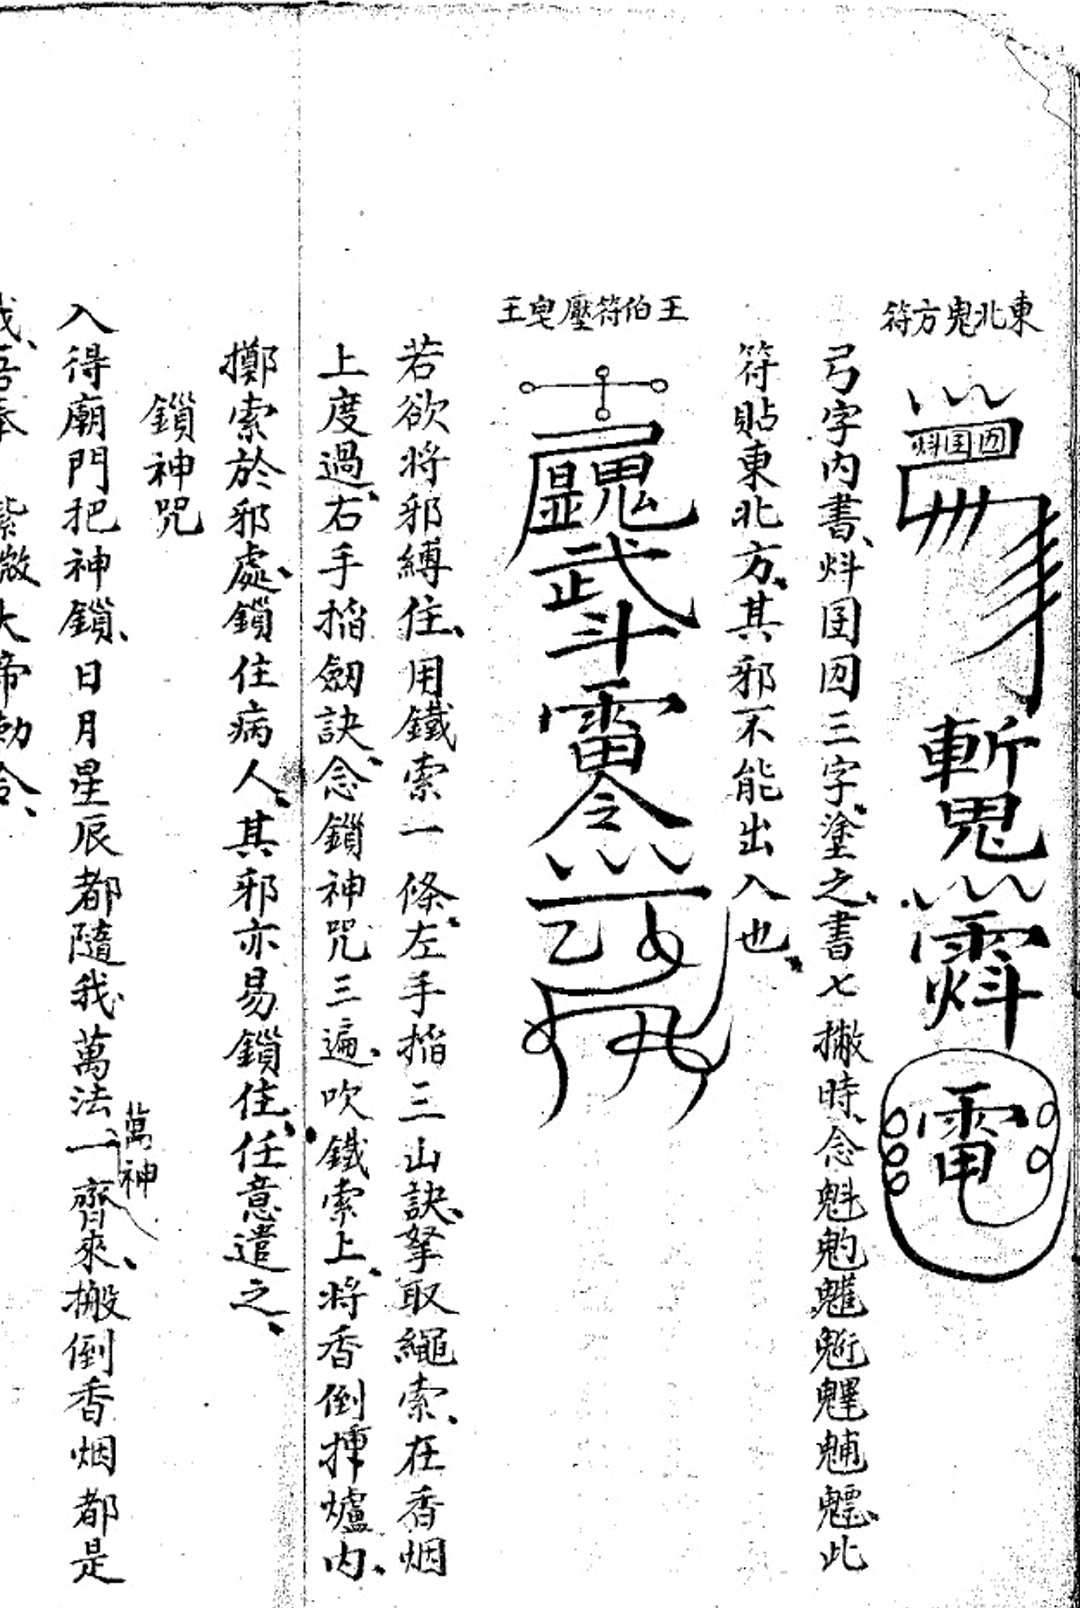 東北鬼方符
斬鬼
弓字内書、炓囯囙三字、塗之、書七撇時、念魁魡䰢魓魓魒、此
符貼東北方、其邪不能出入也、
王伯符壓皂王
武斗雷令
若欲将邪縛住、用鐵索一條、左手搯三山訣、拏取繩索、在香烟
上度過、右手搯劔訣、念鎖神咒三遍、吹鐵索上、将香倒揷爐内、
擲索於邪處、鎖住病人、其邪亦易鎖住、任意遣之、
鎖神咒
入得廟門把神鎖、日月星辰都隨我、萬法一齊來、搬倒香烟都是
萬神
我、吾奉 紫微大帝勅令、